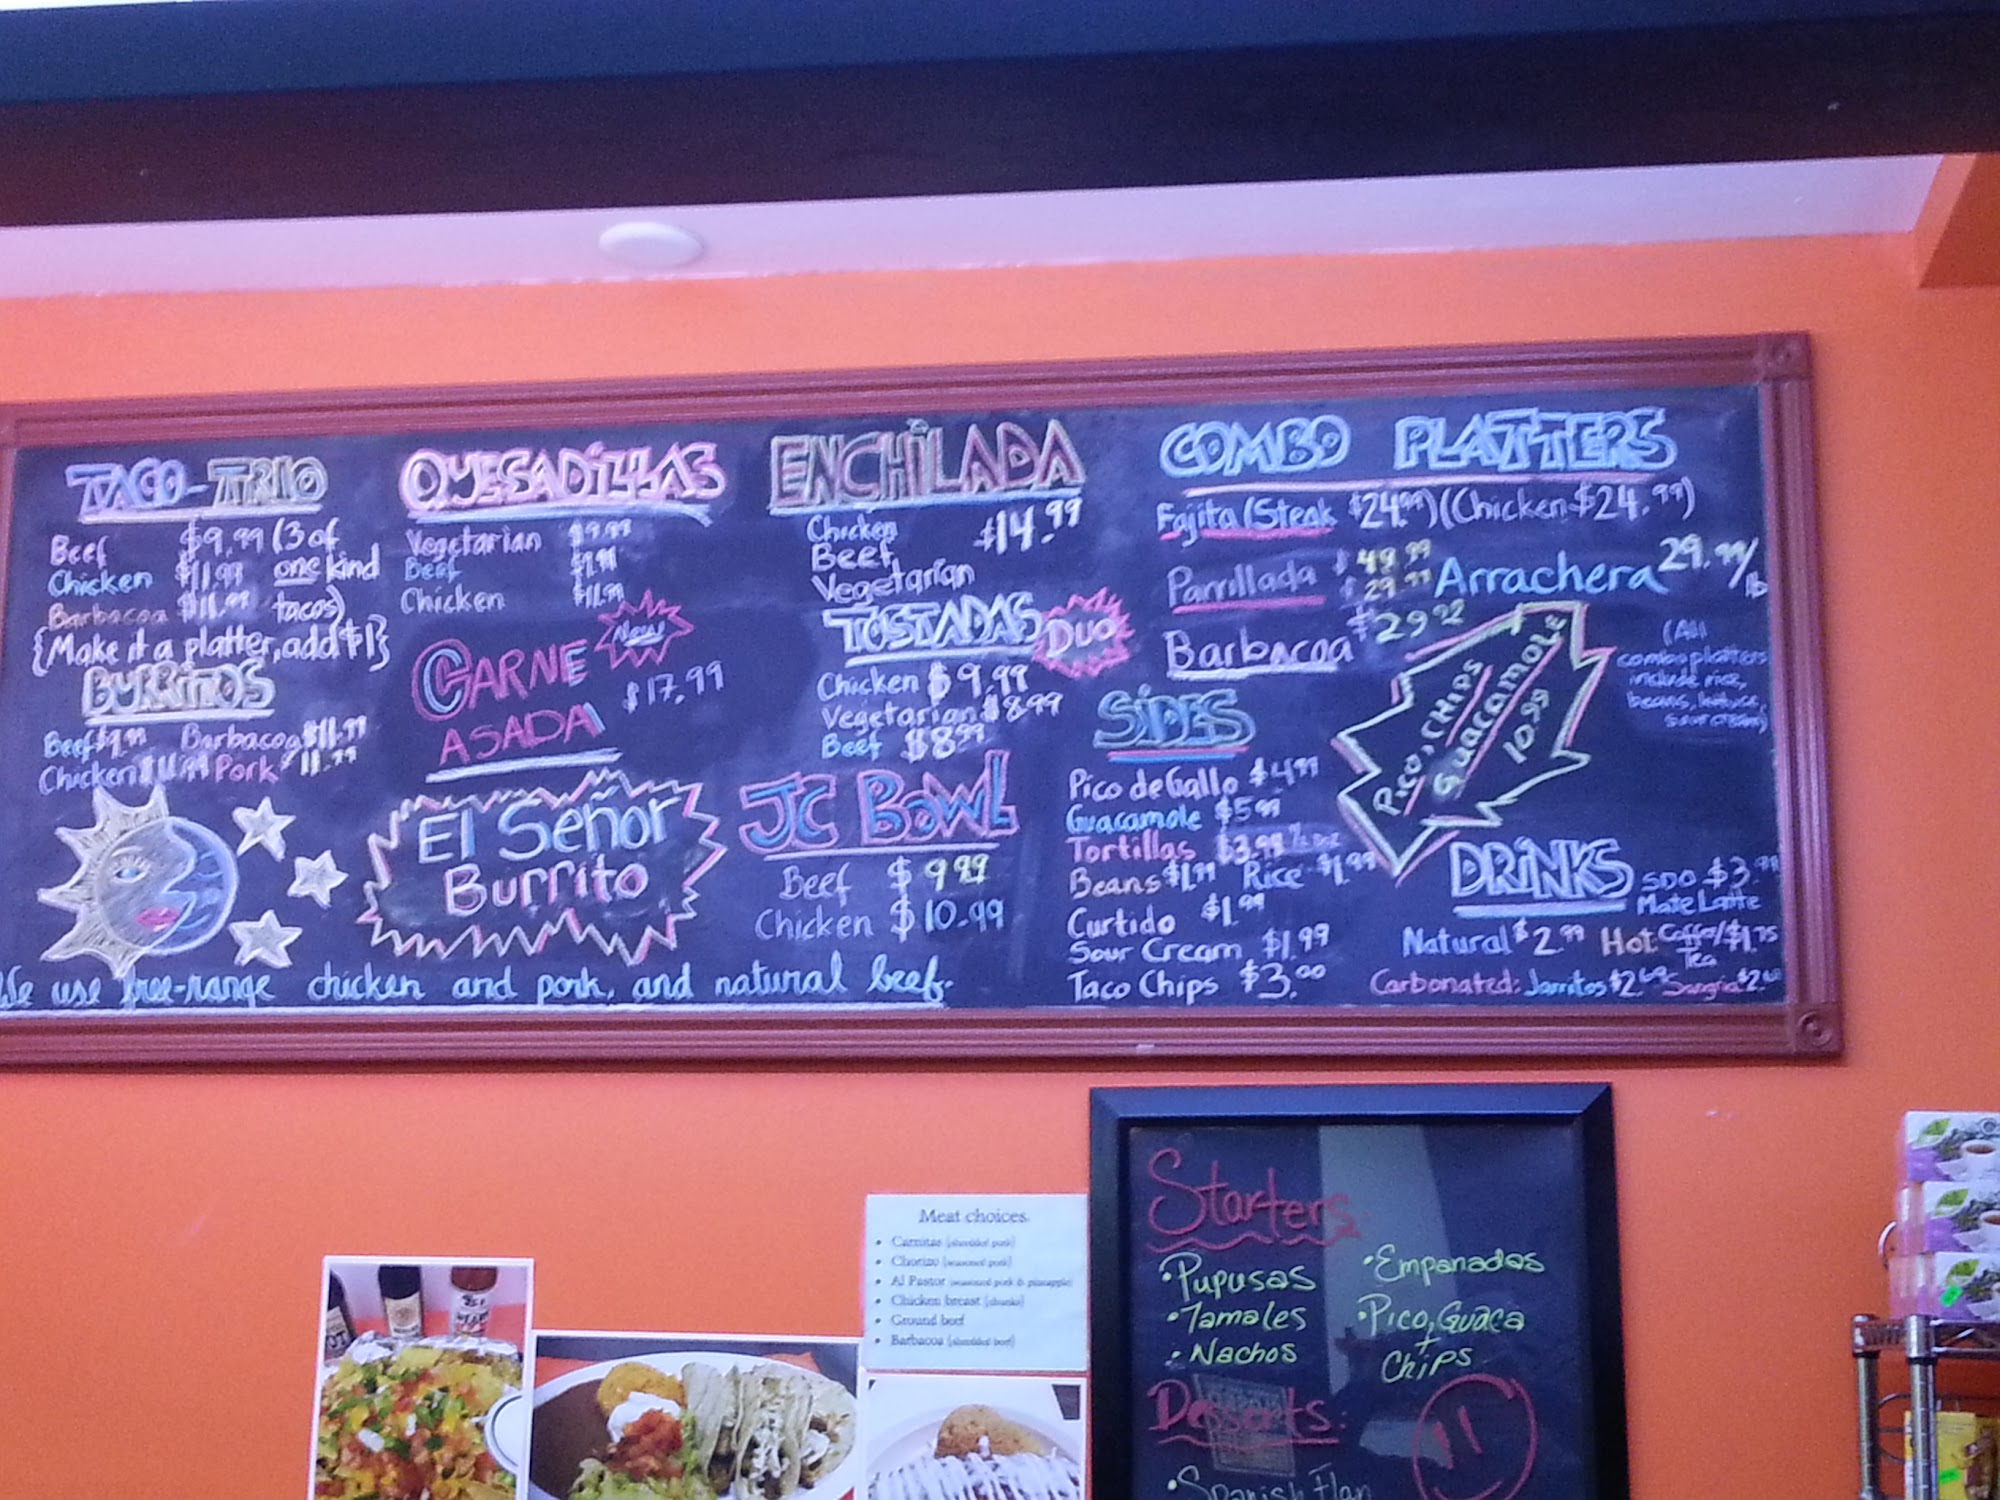 TACO-TRIO
Beef $9.99 (3 of
Chicken $11.99 one kind
Barbacoa $11.99 tacos)
{Make it a platter, add $1}
BURRITOS
Beef $9.99 Barbacoa $11.99
Chicken $11.99 Pork $11.99
QUESADILLAS
Vegetarian $9.99
Beef $9.99
Chicken $11.99
CARNE New
ASADA $17.99
El Señor
Burrito
We use free-range chicken and pork, and natural beef.
ENCHILADA
Chicken $14.99
Beef
Vegetarian
TOSTADAS DUO
Chicken $9.99
Vegetarian $8.99
Beef $8.99
JC BOWL
Beef $9.99
Chicken $10.99
COMBO PLATTERS
Fajita (Steak $24.99) (Chicken $24.99)
Parrillada $48.99
$29.99
Arrachera 29.99/lb
Barbacoa $29.92
(All
combo platters
include rice,
beans, lettuce,
sour cream)
SIDES
Pico de Gallo $4.99
Guacamole $5.99
Tortillas $3.99 1/2 DOZ
Beans $1.99 Rice $1.99
Curtido $1.99
Sour Cream $1.99
Taco Chips $3.00
PICO, CHIPS
GUACAMOLE
10.99
DRINKS
SDO $3.99
Mate Latte
Natural $2.99 Hot Coffee/Tea $1.75
Carbonated: Jarritos $2.69 Sangria $2.69
Meat choices
• Carnitas (shredded pork)
• Chorizo (seasoned pork)
• Al Pastor (seasoned pork & pineapple)
• Chicken breast (chunks)
• Ground beef
• Barbacoa (shredded beef)
Starters
• Pupusas
• Tamales
• Nachos
• Empanadas
• Pico, Guaca
+
Chips
Desserts:
• Spanish Flan